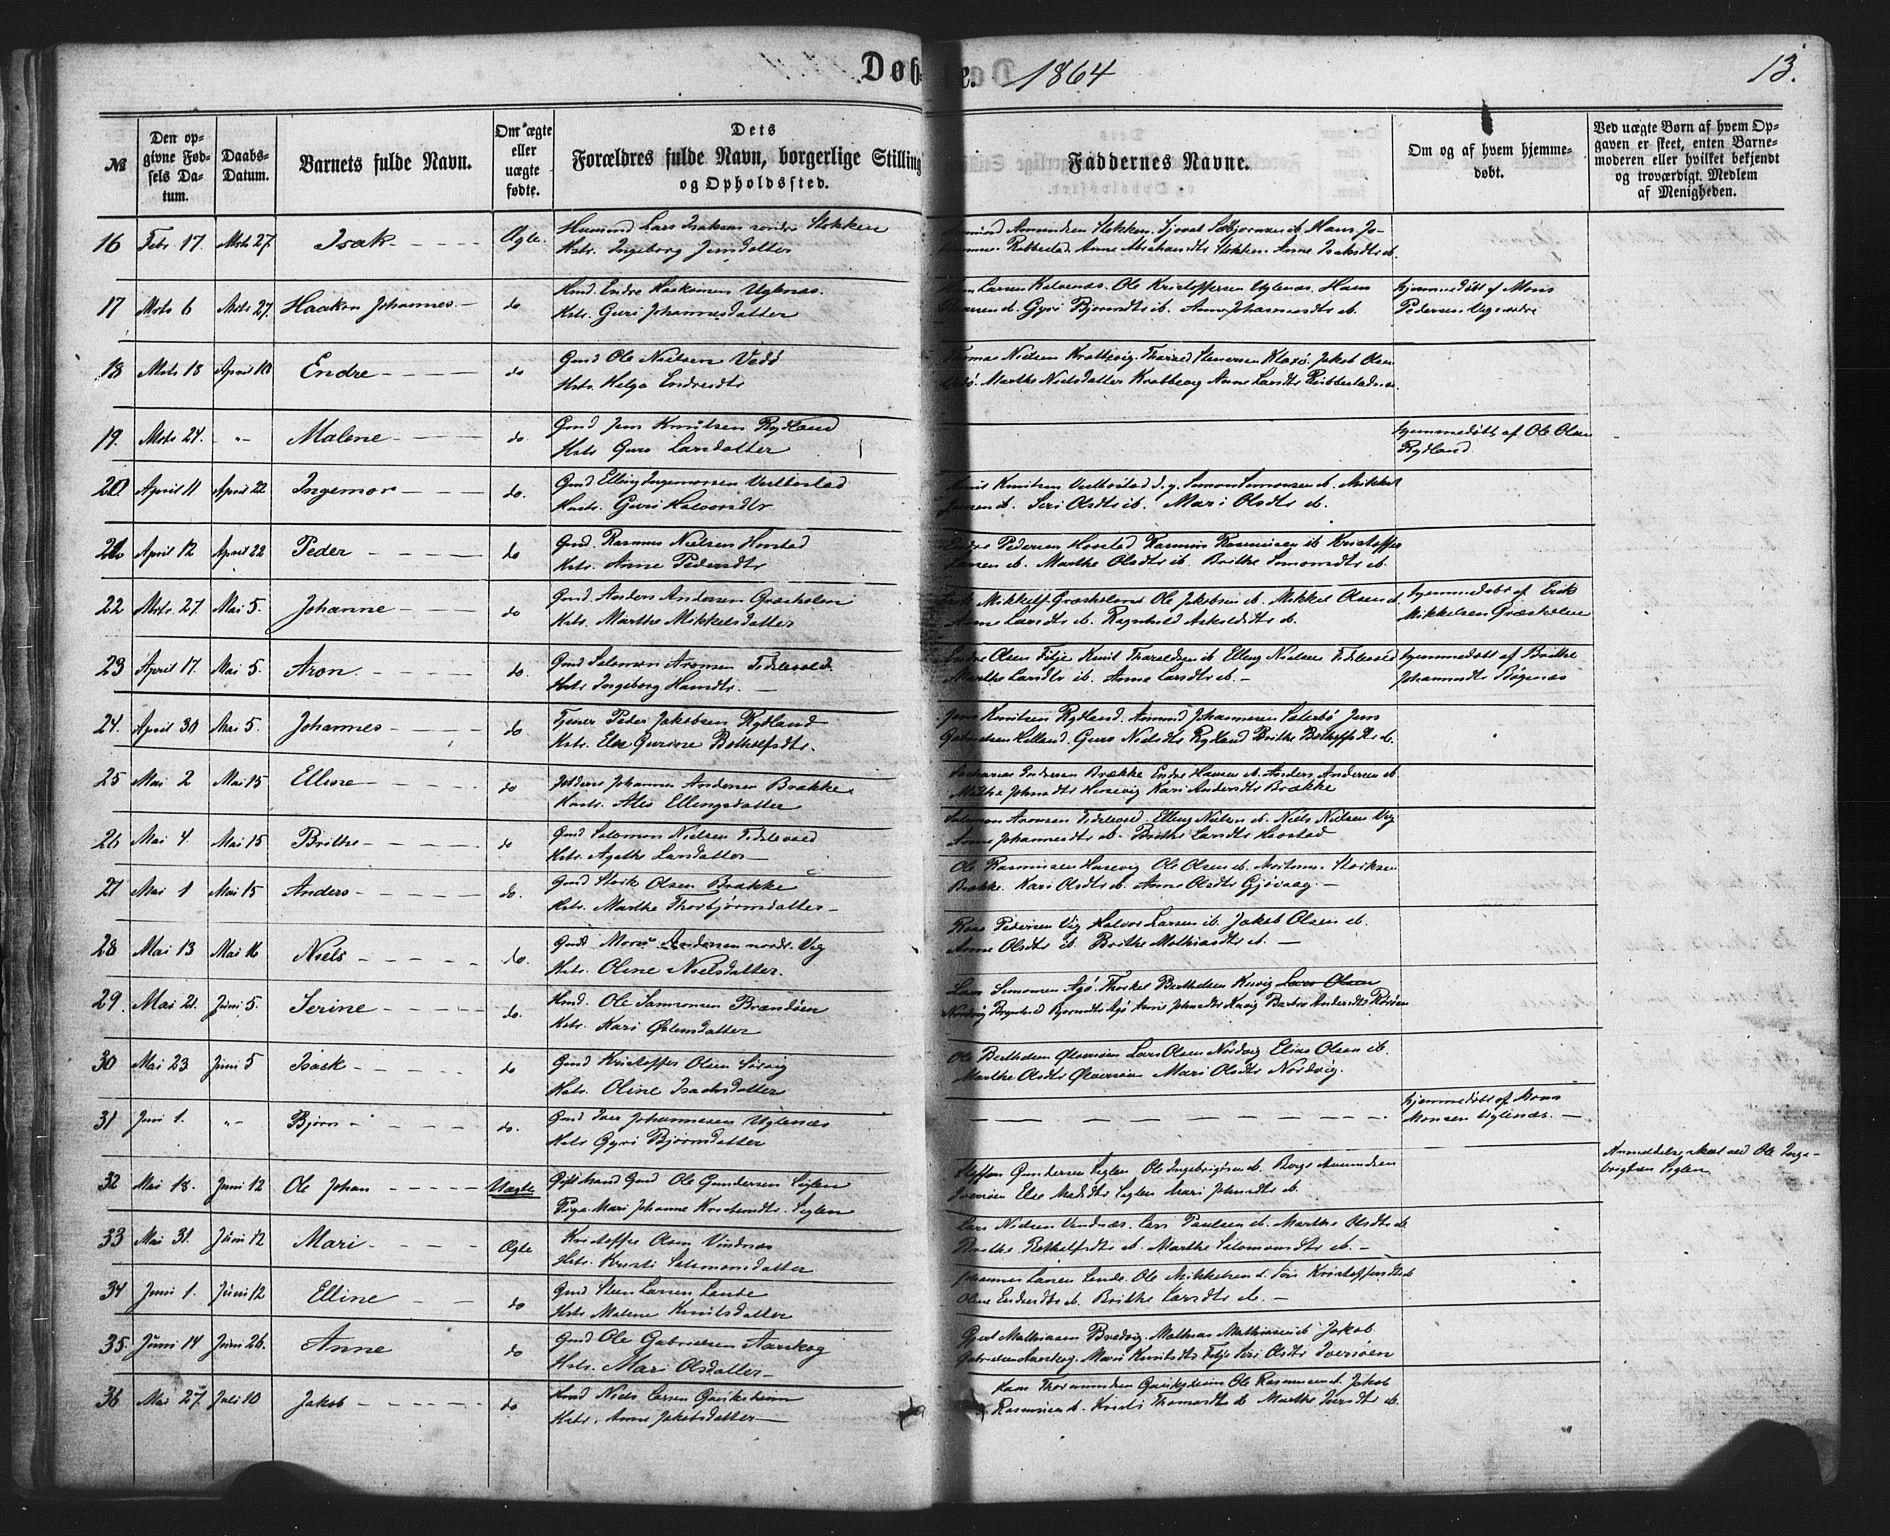 Døbte. 1864
13.
№
Den opgivne Fødsels Datum.
Daabs-Datum.
Barnets fulde Navn.
Om ægte eller uægte fødte.
Dets Forældres fulde Navn, borgerlige Stilling og Opholdssted.
Faddernes Navne.
Om og af hvem hjemmedøbt.
Ved uægte Børn af hvem Opgaven er skeet, enten Barnemoderen eller hvilket bekjendt og troværdigt Medlem af Menigheden.
16 Febr 17. Mrts 27. Isak Ægte. Lars Isaksen søndre Stokken
Kstr. Ingeborg Jensdatter
Amundsen Stokken. Sjovat Asbjørnsen ib. Hans Jo-
Rabbestad. Anne Abrahamsdtr Stokken. Anne Isaksdtr ib.
17 Mrts 6 Mrts 27. Haakon Johannes do Kmd. Endre Haakonsen Uglenæs.
Kstr. Guri Johannesdatter
Larsen Kalvenæs. Ole Kristoffersen Uglenæs. Hans
ib. Gyri Bjørnsdtr ib. Anne Johannesdtr ib.
hjemmedøbt af Mons
Pedersen
18 Mrts 18 April 10 Endre do Gmd Ole Nielsen Vedø
Hstr. Helga Endresdtr
Thomas Nielsen Krabbevig. Jakob Olsen
Vedø. Marthe Nielsdatter Krabbevig Anne Larsdtr
19. Mrts 24. -"- Malene do Gmd Jens Knutsen Rydland
Hstr. Guro Larsdatter
hjemmedøbt af Ole Olsen
Rydland.
20 April 11 April 22 Ingemor do. Gmd Elling Ingemorsen Vestbøstad
Hustr. Guri Halvorsdtr
Knutsen Vestbøstad d.y. Simon Simonsen ib. Mikkel
Jensen ib. Siri Olsdtr ib. Mari Olsdtr ib.
21. April 12 April 22 Peder do Gmd. Rasmus Nielsen Hovstad
Kstr. Anne Pedersdtr
Pedersen Hovstad Rasmus Rasmussen ib Kristoffer
Larsen ib. Marthe Olsdtr ib. Brithe Simonsdtr ib.
22 Mrts. 27 Mai 5. Johanne do Gmd. Anders Andersen Græsholm
Kstr. Marthe Mikkelsdatter
Erik Mikkels. Græsholm Ole Jakobsen ib. Mikkel Olsen ib
Anne Larsdtr ib. Ragnhild ib.
hjemmedøbt af Erik
Mikkelsen Græsholm
23 April 17 Mai 5. Aron do. Gmd Salomon Aronsen Tislevold
Kstr Ingeborg Hansdtr.
Endre Olsen Fitje Knut Tharaldsen ib Elling Nielsen Tislevold
Marthe Larsdtr ib. Anne Larsdtr ib.
hjemmedøbt af Brithe
Johannesdtr Bøgenæs
24. April 30 Mai 5. Johannes do Tjener Peder Jakobsen Rydland
Kstr. Else Gurine Bothelfsdtr.
Jens Knutsen Rydland. Amund Johannesen Sæterbø Jens
Gabrielsen Guro Nielsdtr Rydland Brithe Bothelfsdtr ib.
25 Mai 2 Mai 15 Elline do Johannes Andersen Brække
Kstr. Ales Ellingsdatter
Zacharias Endresen Brække Endre Hansen ib. Anders Andersen ib.
Malthe Johnsdtr Hussevig Kari Andersdtr Brække
26 Mai 4. Mai 15 Brithe do Gmd Salomon Nielsen Tislevold
Kstr. Agathe Larsdatter
Salomon Aronsen Tislevold. Elling Nielsen ib. Niels Nielsen Vig
Anne Johannesdtr ib. Brithe Larsdtr Hovstad
27 Mai 1 Mai 15 Anders do. Gmd Størk Olsen Brække
Kstr. Marthe Thorbjørnsdatter
Ole Rasmussen Hussevig Ole Olsen ib. Størksen
Brække. Kari Olsdtr ib. Anne Olsdtr Gjøvaag.
28 Mai 13 Mai 16 Niels do. Gmd. Mons Andersen nordr. Vig
Kstr. Oline Nielsdatter.
Pedersen Vig Halvor Larsen ib Jakob Olsen ib.
Anne Olsdtr ib. Brithe Mathiasdtr ib.
29. Mai 21. Juni 5. Serine do. Kmd. Ole Samsonsen Brandøen
Kstr. Kari Østensdatter
Simonsen Agø. Thorkel Berthelsen Kuvig Lars Olsen
Nordvig Brynhild Bjørnsdtr Agø Anne Johnsdtr Kuvig Barbro Andersdtr
30 Mai 23 Juni 5 Isak do Gmd Kristoffer Olsen Sørvig
Kstr. Oline Isaksdatter
Ole Berthelsen Øvrevøen Lars Olsen Nordvig Elias Olsen ib.
Marthe Olsdtr Øvrevøen Mari Olsdtr Nordvig.
31 Juni 1. -"- Bjørn do. Gmd Iver Johannesen Uglenæs
Kstr Gyri Bjørnsdatter
hjemmedøbt af Mons
Monsen Uglenæs.
32 Mai 18. Juni 12 Ole Johan Uægte Gmd Ole Gundersen Siglen
Pige Mari Johanne Kristensdtr. Siglen
Steffen Gundersen Siglen Ole Ingebrigtsen ib. Borge Amundsen
Else Madsdtr Siglen Mari Johnsdtr ib.
Anmeldelse skeet ved Ole Inge-
brigtsen Siglen
33 Mai 31. Juni 12 Mari Ægte Kristoffer Olsen Vindnæs
Hstr. Kristi Salomonsdatter
Lars Nielsen Vindnæs. Lars Paulsen ib. Marthe Olsdtr ib.
Brithe Bothelfsdtr ib. Marthe Salomonsdtr ib.
34 Juni 1. Juni 12 Elline do Gmd Steen Larsen Lande
Kstr Malene Knutsdatter
Johannes Larsen Lande. Ole Mikkelsen ib. Siri Kristoffersdtr ib
Oline Endresdtr ib. Brithe Larsdtr ib.
35. Juni 14 Juni 26. Anne do Gmd Ole Gabrielsen Aarskog
Hstr. Mari Olsdatter
Gjert Mathiasen Bredvig. Mathias Mathiasen ib Jakob
Gabrielsen Aarskog. Mari Knutsdtr Fitje Siri Olsdtr Iversøen
36 Mai 27. Juli 10 Jakob do Kmd Niels Larsen Gaukeheim
Kstr. Anne Jakobsdatter
Hans Thormundsen Gaukeheim Ole Rasmussen ib. Jakob
Rasmussen ib. Kristi Thomasdtr ib Marthe Iversdtr ib.